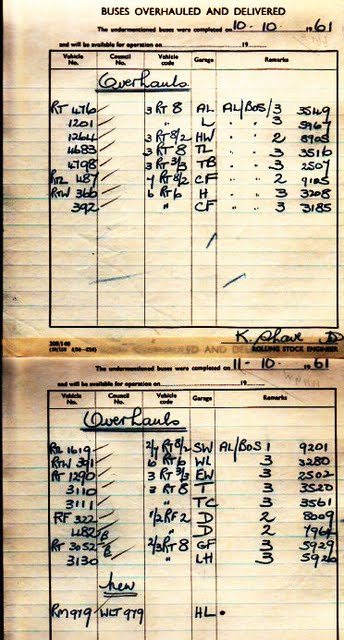 BUSES OVERHAULED AND DELIVERED
The undermentioned buses were completed on 10-10- 1961
and will be available for operation on 19
Vehicle No. Council No. Vehicle code Garage Remarks
Overhauls
RT 476 3 RT 8 AL AL/BOS/3 3549
1201 " L " " 3 5967
1264 3 RT 8/2 HW " " 2 8905
4683 3 RT 8 TL " " 3 3516
4798 3 RT 3/3 TB " " 3 2507
RTL 487 4 RT 8/2 CF " " 2 9125
RTW 366 6 RT 6 H " " 3 3208
392 " CF " " 3 3185
ROLLING STOCK ENGINEER
The undermentioned buses were completed on 11-10- 1961
and will be available for operation on 19
Vehicle No. Council No. Vehicle code Garage Remarks
Overhauls
RTL 1619 RT 8/2 SW AL/BOS 1 9201
RTW 391 6 RT 6 WL 3 3280
RT 1290 3 RT 3/3 EW 3 2502
3110 3 RT 8 T 3 3520
3111 " TC 3 3561
RF 322 1/2 RF 2 D 2 8009
482 B " D 2
RT 3052 B 2/3 RT 8 GF 3 5929
3130 " LH 3
new
RM 979 WLT 979 HL